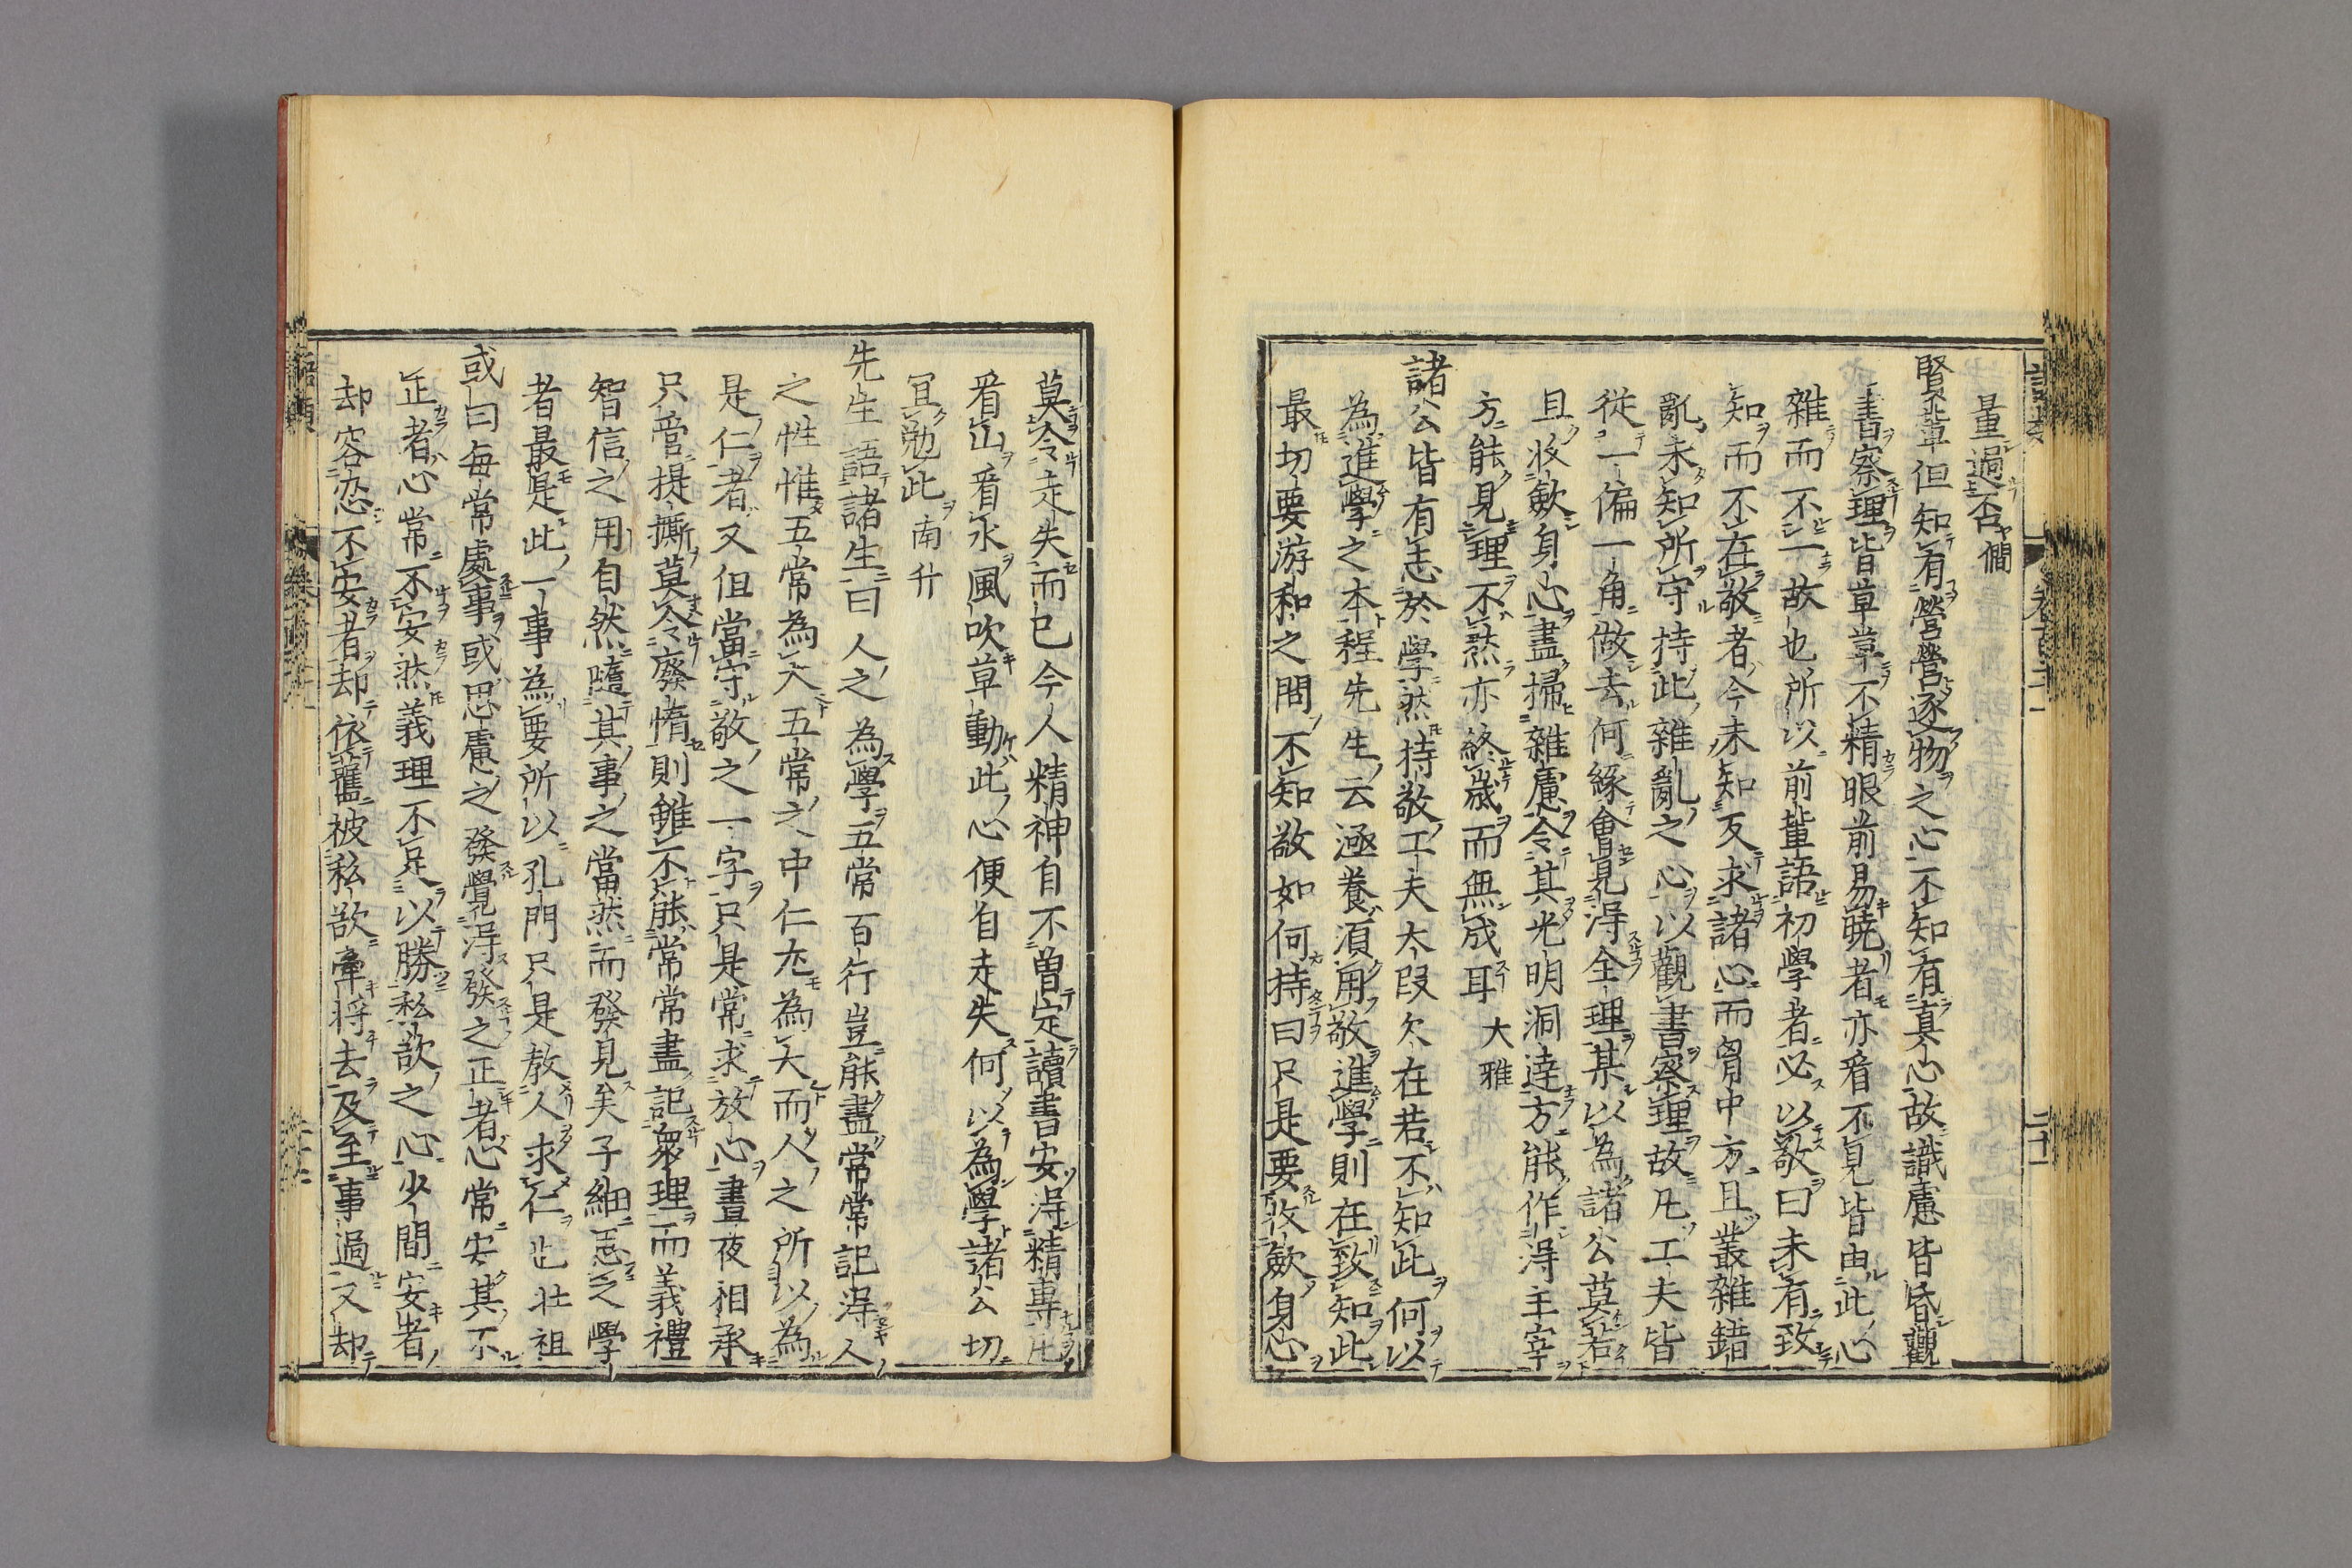 量過否僩
賢輩但知有營營逐物之心不知有真心故識慮皆昏觀
書察理皆草草不精眼前易曉者亦看不見皆由此心
雜而不一故也所以前輩語初學者必以敬曰未有致
知而不在敬者今未知反求諸心而胷中方且叢雜錯
亂未知所守持此雜亂之心以觀書察理故凡工夫皆
從一偏一角做去何緣會見得全理某以為諸公莫若
且收歛身心盡掃雜慮令其光明洞達方能作得主宰
方能見理不然亦終歲而無成耳 大雅
諸公皆有志於學然持敬工夫大段欠在若不知此何以
為進學之本程先生云涵養須用敬進學則在致知此
最切要游和之問不知敬如何持曰只是要收歛身心
莫令走失而已今人精神自不曽定讀書安得精專凡
看山看水風吹草動此心便自走失何以為學諸公切
冝勉此 南升
先生語諸生曰人之為學五常百行豈能盡常常記得人
之性惟五常為大五常之中仁尤為大而人之所以為
是仁者又但當守敬之一字只是常求放心晝夜相承
只管提撕莫令廢惰則雖不能常常盡記衆理而義禮
智信之用自然隨其事之當然而發見矣子細思之學
者最是此一事為要所以孔門只是教人求仁也 壯祖
或曰每常處事或思慮之發覺得發之正者心常安其不
正者心常不安然義理不足以勝私欲之心少間安者
却容忍不安者却依舊被私欲牽將去及至事過又却